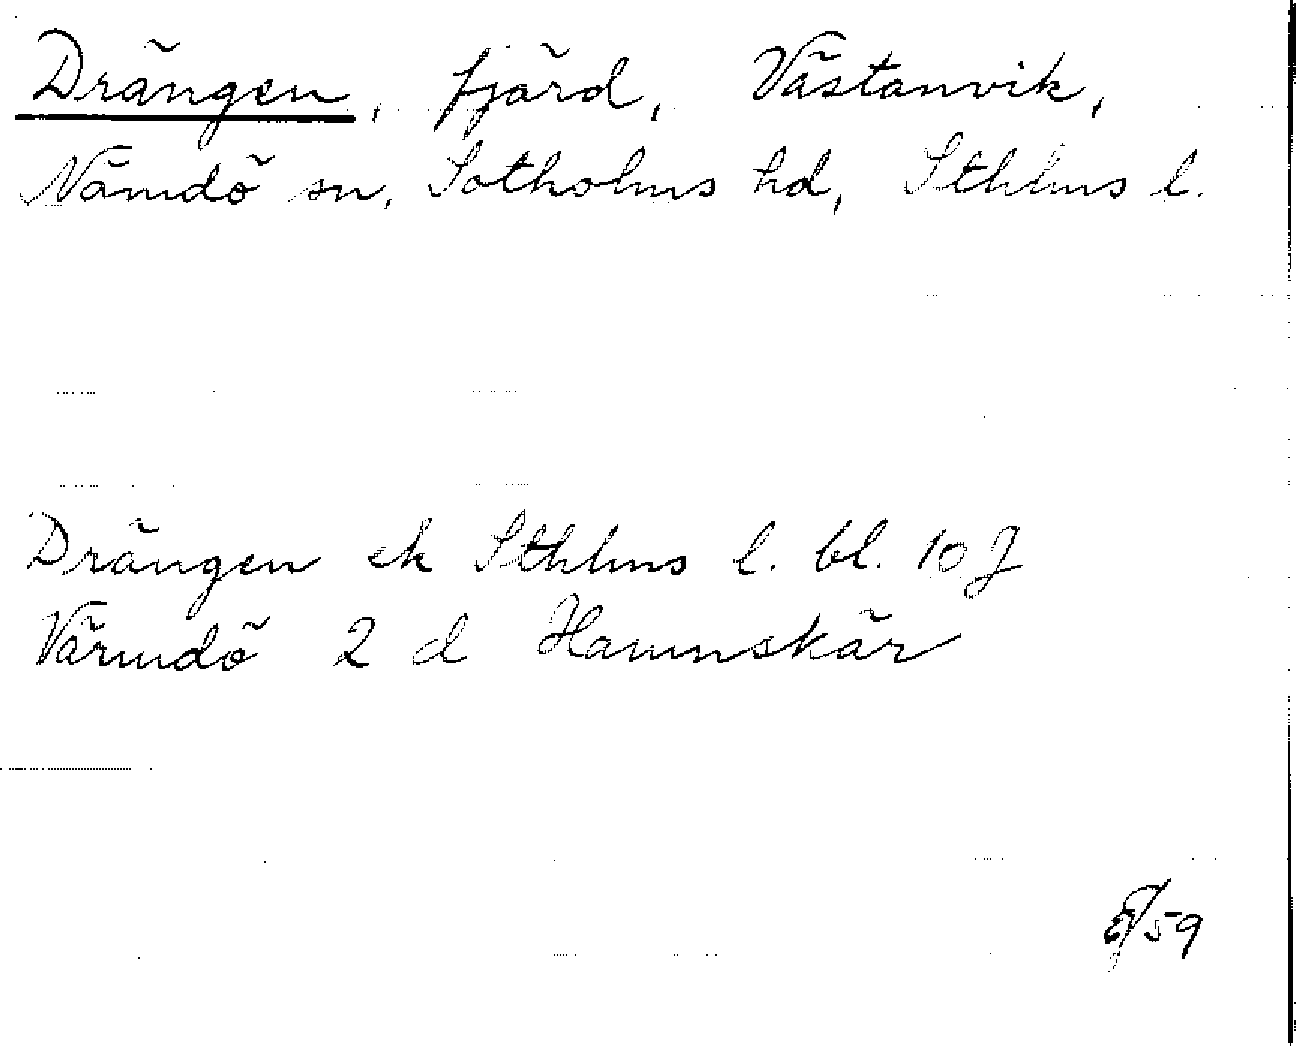 Drängen, fjärd, Västanvik,
Nämdö sn, Sotholms hd, Sthlms l.
Drängen ek Sthlms l. bl. 10 J
Värmdö 2 d Hamnskär
/59